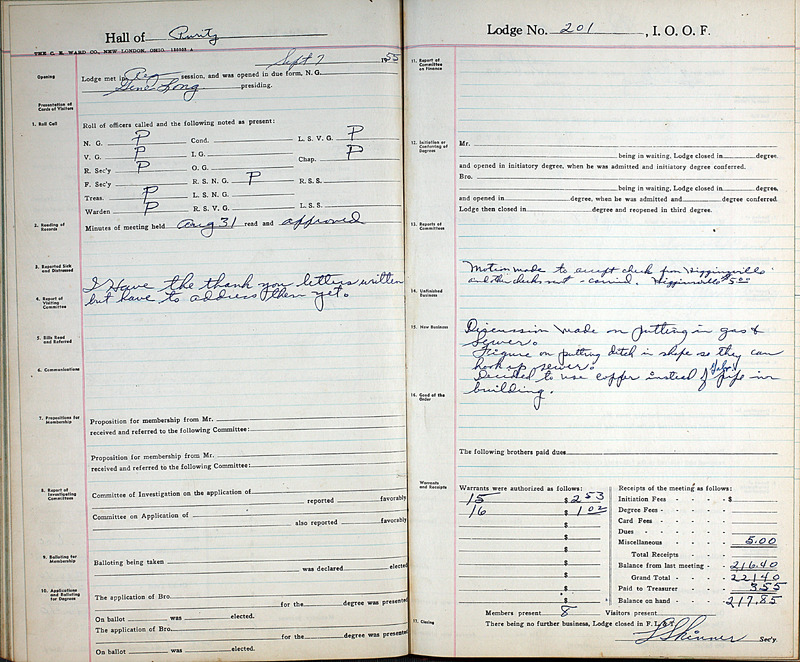 Hall of Purity
THE C. E. WARD CO., NEW LONDON, OHIO
Sept 7 1955
Opening
Lodge met in Reg session, and was opened in due form, N. G.
Gene Long presiding.
Presentation of Cards of Visitors
1. Roll Call
Roll of officers called and the following noted as present:
N. G. P Cond. L. S. V. G. P
V. G. P I. G. Chap. P
R. Sec'y P O. G.
F. Sec'y R. S. N. G. P R. S. S.
Treas. P L. S. N. G.
Warden P R. S. V. G. L. S. S.
2. Reading of Records
Minutes of meeting held Aug 31 read and approved
3. Reported Sick and Distressed
I Have the thank you letters written
4. Report of Visiting Committee
but have to address them yet.
5. Bills Read and Referred
6. Communications
7. Propositions for Membership
Proposition for membership from Mr.
received and referred to the following Committee:
Proposition for membership from Mr.
received and referred to the following Committee:
8. Report of Investigating Committees
Committee of Investigation on the application of
reported favorably
Committee on Application of
also reported favorably
9. Balloting for Membership
Balloting being taken
was declared elected
10. Applications and Balloting for Degrees
The application of Bro.
for the degree was presented
On ballot was elected.
The application of Bro.
for the degree was presented
On ballot was elected.
Lodge No. 201, I. O. O. F.
11. Report of Committee on Finance
12. Initiation or Conferring of Degrees
Mr.
being in waiting, Lodge closed in degree,
and opened in initiatory degree, when he was admitted and initiatory degree conferred.
Bro.
being in waiting, Lodge closed in degree,
and opened in degree, when he was admitted and degree conferred.
Lodge then closed in degree and reopened in third degree.
13. Reports of Committees
Motion made to accept check from Higginsville
and then checks not - carried. Higginsville $5.00
14. Unfinished Business
15. New Business
Discussion made on putting in gas &
sewer.
Figure on putting ditch in shape so they can
hook up sewer.
Decided to use copper instead of pipe in
building.
16. Good of the Order
The following brothers paid dues
Warrants and Receipts
Warrants were authorized as follows:
15 $ 2 53
16 $ 1 02
$
$
$
$
$
$
$
Receipts of the meeting as follows:
Initiation Fees - - - $
Degree Fees - - - -
Card Fees - - - -
Dues - - - - -
Miscellaneous - - - - 5.00
Total Receipts - -
Balance from last meeting - 216.40
Grand Total - - - 221 40
Paid to Treasurer - - 3.55
Balance on hand - - - 217.85
Members present 8 Visitors present
17. Closing
There being no further business, Lodge closed in F. L. & T.
Skinner Sec'y.